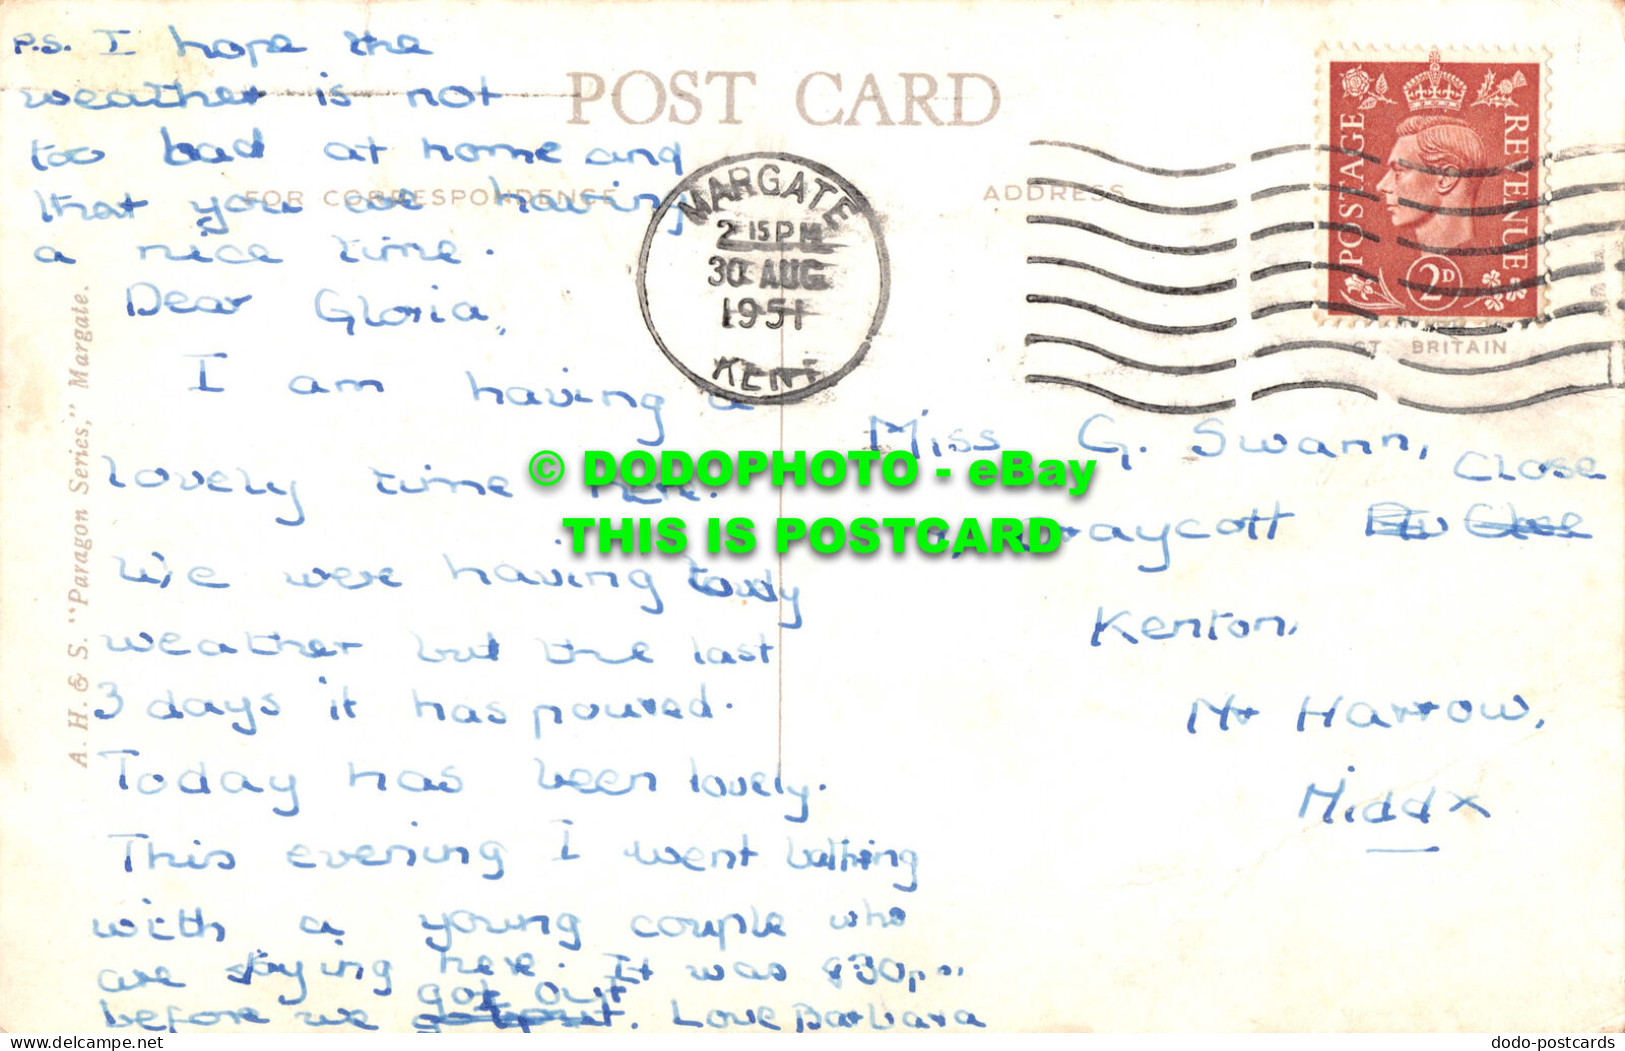 P.S. I hope the
weather is not
too bad at home and
that you are having
a nice time.
Dear Gloria,
I am having a
lovely time here.
We were having
weather but the last
3 days it has poured.
Today has been lovely.
This evening I went bathing
with a young couple who
are staying here. It was 830pm
before we got out. Love Barbara
POST CARD
FOR CORRESPONDENCE
ADDRESS
A. H. & S. "Paragon Series," Margate.
MARGATE
2 15 PM
30 AUG
1951
KENT
POSTAGE
REVENUE
2D
GT. BRITAIN
Miss G. Swann,
Draycott Close
Kenton,
Nr Harrow,
Middx
© DODOPHOTO - eBay
THIS IS POSTCARD
www.delcampe.net
dodo-postcards